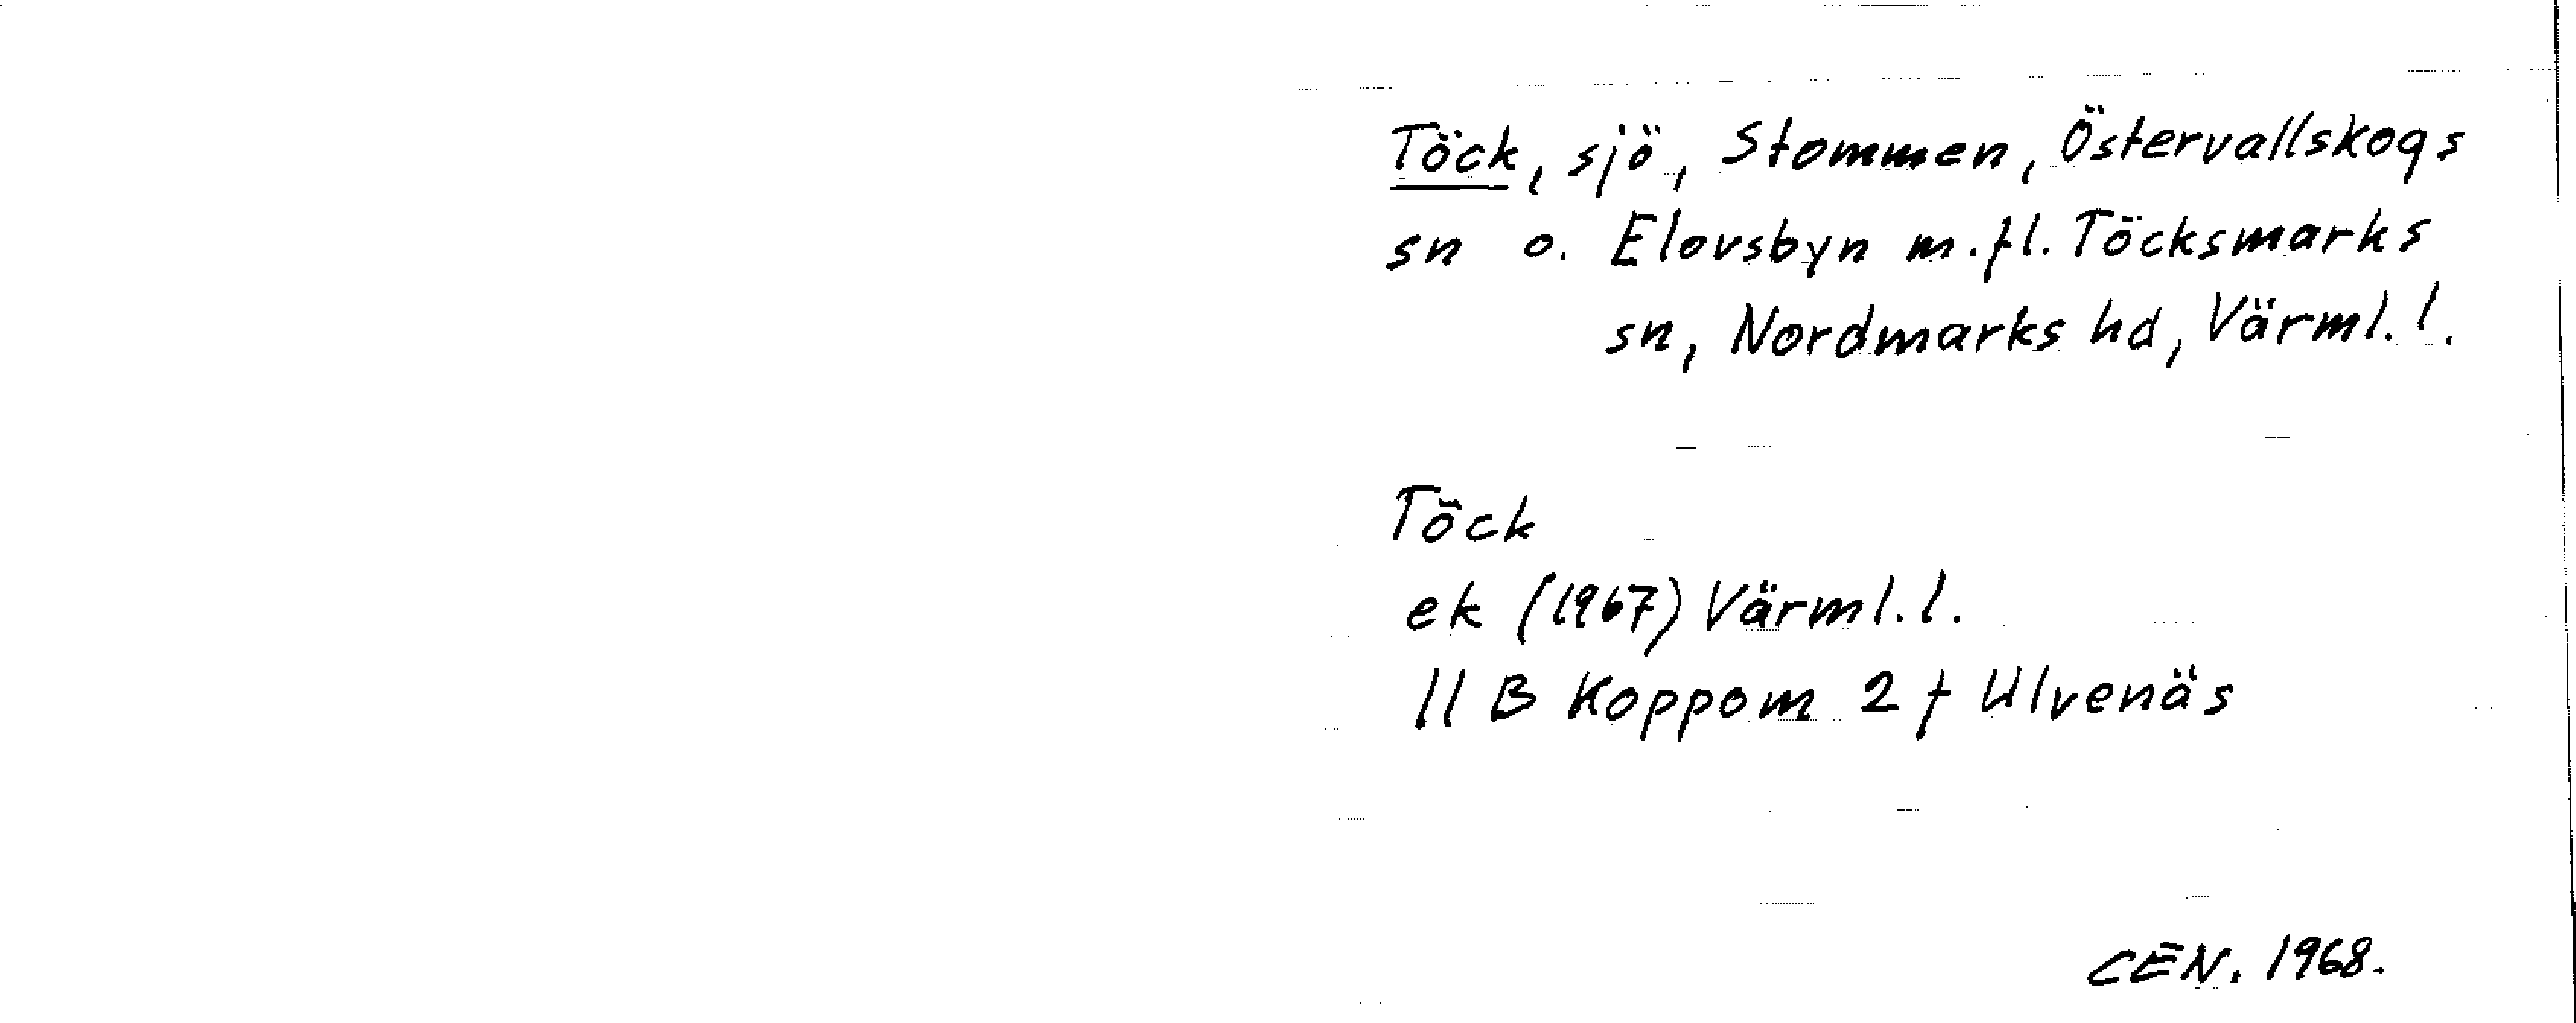 Töck, sjö, Stommen, Östervallskogs
sn o. Elovsbyn m.fl. Töcksmarks
sn, Nordmarks hd, Värml. l.
Töck
ek (1967) Värml. l.
11 B Koppom 2 f Ulvenäs
CEN. 1968.